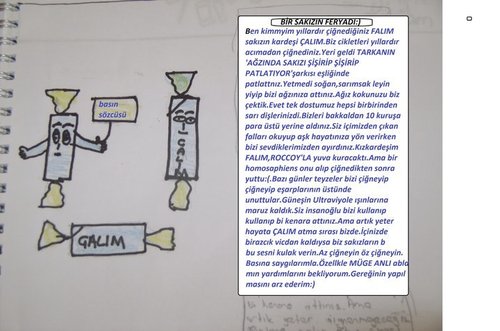 BİR SAKIZIN FERYADI:)
Ben kimmyim yıllardır çiğnediğiniz FALIM
sakızın kardeşi ÇALIM.Biz cikletleri yıllardır
acımadan çiğnediniz.Yeri geldi TARKANIN
'AĞZINDA SAKIZI ŞİŞİRİP ŞİŞİRİP
PATLATIYOR'şarkısı eşliğinde
patlattnız.Yetmedi soğan,sarımsak leyin
yiyip bizi ağzınıza attınız.Ağız kokunuzu biz
çektik.Evet tek dostumuz hepsi birbirinden
sarı dişlerinizdi.Bizleri bakkaldan 10 kuruşa
para üstü yerine aldınız.Siz içimizden çıkan
falları okuyup aşk hayatınıza yön verirken
bizi sevdiklerimizden ayırdınız.Kızkardeşim
FALIM,ROCCOY'LA yuva kuracaktı.Ama bir
homosaphiens onu alıp çiğnedikten sonra
yuttu:(.Bazı günler teyzeler bizi çiğneyip
çiğneyip eşarplarının üstünde
unuttular.Güneşin Ultraviyole ışınlarına
maruz kaldık.Siz insanoğlu bizi kullanıp
kullanıp bi kenara attınız.Ama artık yeter
hayata ÇALIM atma sırası bizde.İçinizde
birazcık vicdan kaldıysa biz sakızların b
bu sesni kulak verin.Az çiğneyin öz çiğneyin.
Basına saygılarımla.Özellkle MÜGE ANLI abla
mın yardımlarını bekliyorum.Gereğinin yapıl
masını arz ederim:)
basın
sözcüsü
ÇALIM
ÇALIM